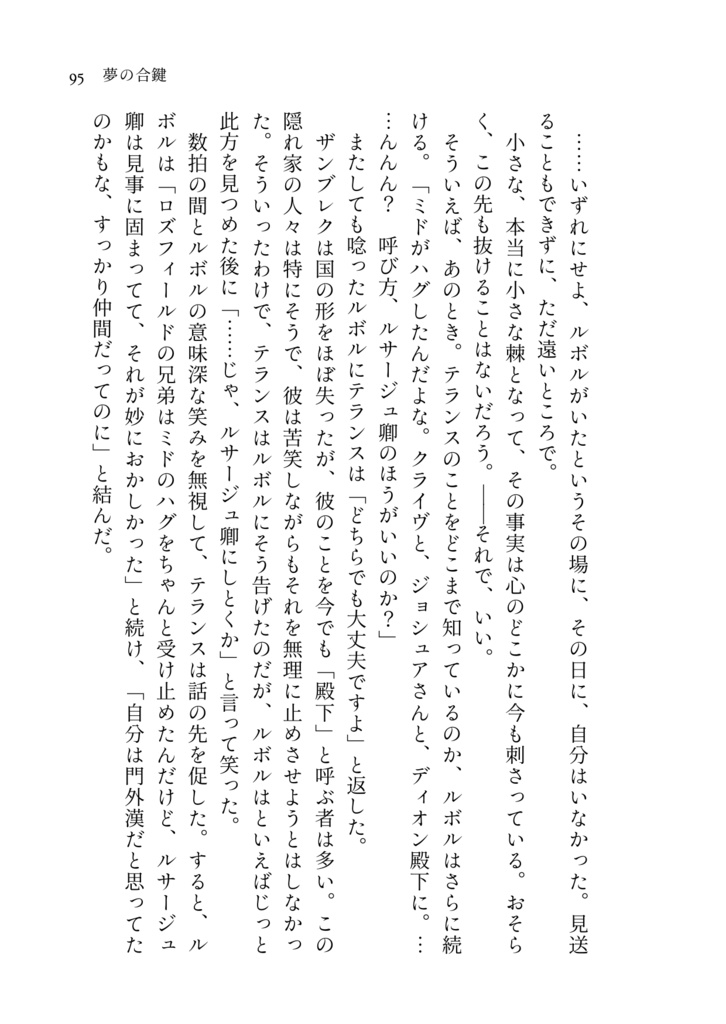 95 夢の合鍵
……いずれにせよ、ルボルがいたというその場に、その日に、自分はいなかった。見送
ることもできずに、ただ遠いところで。
小さな、本当に小さな棘となって、その事実は心のどこかに今も刺さっている。おそら
く、この先も抜けることはないだろう。――それで、いい。
そういえば、あのとき。テランスのことをどこまで知っているのか、ルボルはさらに続
ける。「ミドがハグしたんだよな。クライヴと、ジョシュアさんと、ディオン殿下に。…
…んんん？　呼び方、ルサージュ卿のほうがいいのか？」
またしても唸ったルボルにテランスは「どちらでも大丈夫ですよ」と返した。
ザンブレクは国の形をほぼ失ったが、彼のことを今でも「殿下」と呼ぶ者は多い。この
隠れ家の人々は特にそうで、彼は苦笑しながらもそれを無理に止めさせようとはしなかっ
た。そういったわけで、テランスはルボルにそう告げたのだが、ルボルはといえばじっと
此方を見つめた後に「……じゃ、ルサージュ卿にしとくか」と言って笑った。
数拍の間とルボルの意味深な笑みを無視して、テランスは話の先を促した。すると、ル
ボルは「ロズフィールドの兄弟はミドのハグをちゃんと受け止めたんだけど、ルサージュ
卿は見事に固まってて、それが妙におかしかった」と続け、「自分は門外漢だと思ってた
のかもな、すっかり仲間だってのに」と結んだ。